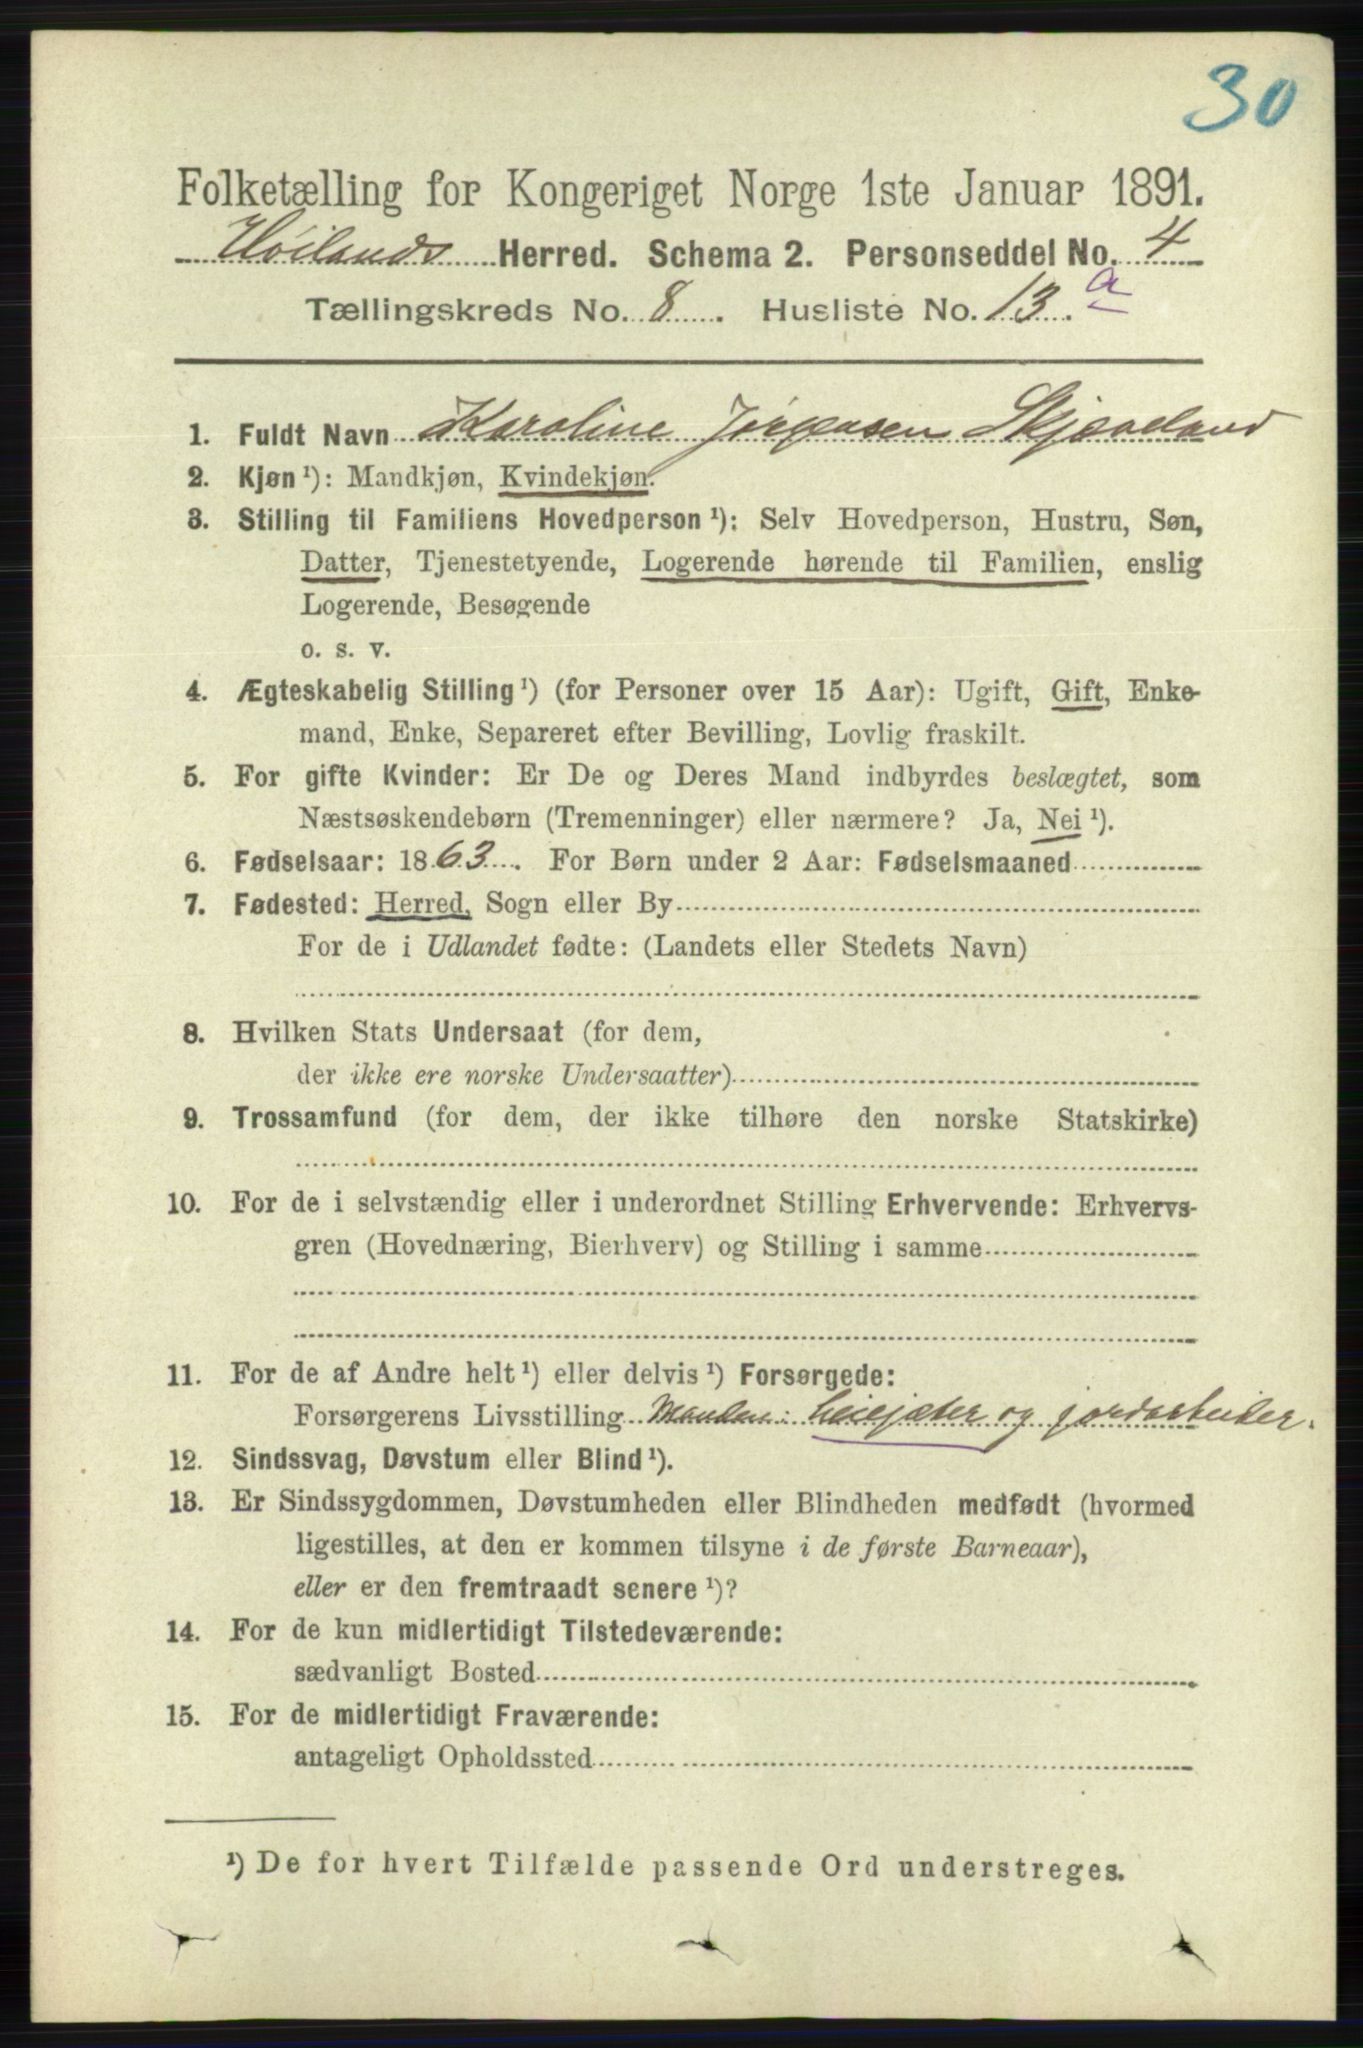 30
Folketælling for Kongeriget Norge 1ste Januar 1891.
Høilands Herred. Schema 2. Personseddel No. 4
Tællingskreds No. 8. Husliste No. 13.a
1. Fuldt Navn Karoline Jörgensen Skjæveland
2. Kjøn ¹): Mandkjøn, Kvindekjøn.
3. Stilling til Familiens Hovedperson ¹): Selv Hovedperson, Hustru, Søn,
Datter, Tjenestetyende, Logerende hørende til Familien, enslig
Logerende, Besøgende
o. s. v.
4. Ægteskabelig Stilling ¹) (for Personer over 15 Aar): Ugift, Gift, Enke-
mand, Enke, Separeret efter Bevilling, Lovlig fraskilt.
5. For gifte Kvinder: Er De og Deres Mand indbyrdes beslægtet, som
Næstsøskendebørn (Tremenninger) eller nærmere? Ja, Nei ¹).
6. Fødselsaar: 1863. For Børn under 2 Aar: Fødselsmaaned
7. Fødested: Herred, Sogn eller By
For de i Udlandet fødte: (Landets eller Stedets Navn)
8. Hvilken Stats Undersaat (for dem,
der ikke ere norske Undersaatter)
9. Trossamfund (for dem, der ikke tilhøre den norske Statskirke)
10. For de i selvstændig eller i underordnet Stilling Erhvervende: Erhvervs-
gren (Hovednæring, Bierhverv) og Stilling i samme
11. For de af Andre helt ¹) eller delvis ¹) Forsørgede:
Forsørgerens Livsstilling Manden: og jordarbeider.
12. Sindssvag, Døvstum eller Blind ¹).
13. Er Sindssygdommen, Døvstumheden eller Blindheden medfødt (hvormed
ligestilles, at den er kommen tilsyne i de første Barneaar),
eller er den fremtraadt senere ¹)?
14. For de kun midlertidigt Tilstedeværende:
sædvanligt Bosted
15. For de midlertidigt Fraværende:
antageligt Opholdssted
¹) De for hvert Tilfælde passende Ord understreges.